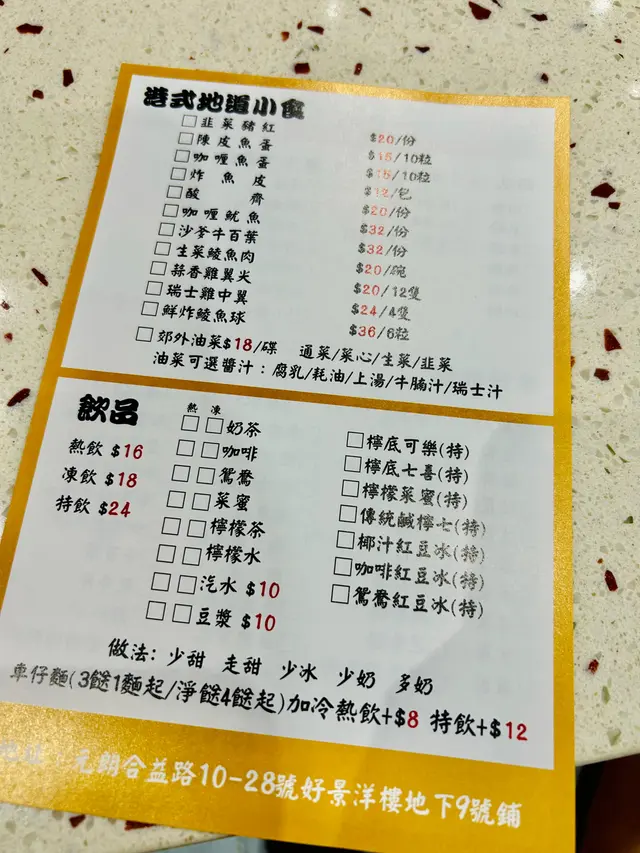 港式地道小食
□韭菜豬紅 $20/份
□陳皮魚蛋 $15/10粒
□咖喱魚蛋 $15/10粒
□炸魚皮 $12/包
□酸齋 $20/份
□咖喱魷魚 $32/份
□沙爹牛百葉 $32/份
□生菜鯪魚肉 $20/碗
□蒜香雞翼尖 $20/12隻
□瑞士雞中翼 $24/4隻
□鮮炸鯪魚球 $36/6粒
□郊外油菜$18/碟 通菜/菜心/生菜/韭菜
油菜可選醬汁:腐乳/耗油/上湯/牛腩汁/瑞士汁
飲品
熱飲 $16
凍飲 $18
特飲 $24
熱 凍
□□奶茶
□□咖啡
□□鴛鴦
□□菜蜜
□□檸檬茶
□□檸檬水
□□汽水 $10
□□豆漿 $10
□檸底可樂(特)
□檸底七喜(特)
□檸檬菜蜜(特)
□傳統鹹檸七(特)
□椰汁紅豆冰(特)
□咖啡紅豆冰(特)
□鴛鴦紅豆冰(特)
做法: 少甜 走甜 少冰 少奶 多奶
車仔麵(3餸1麵起/淨餸4餸起)加冷熱飲+$8 特飲+$12
地址:元朗合益路10-28號好景洋樓地下9號鋪